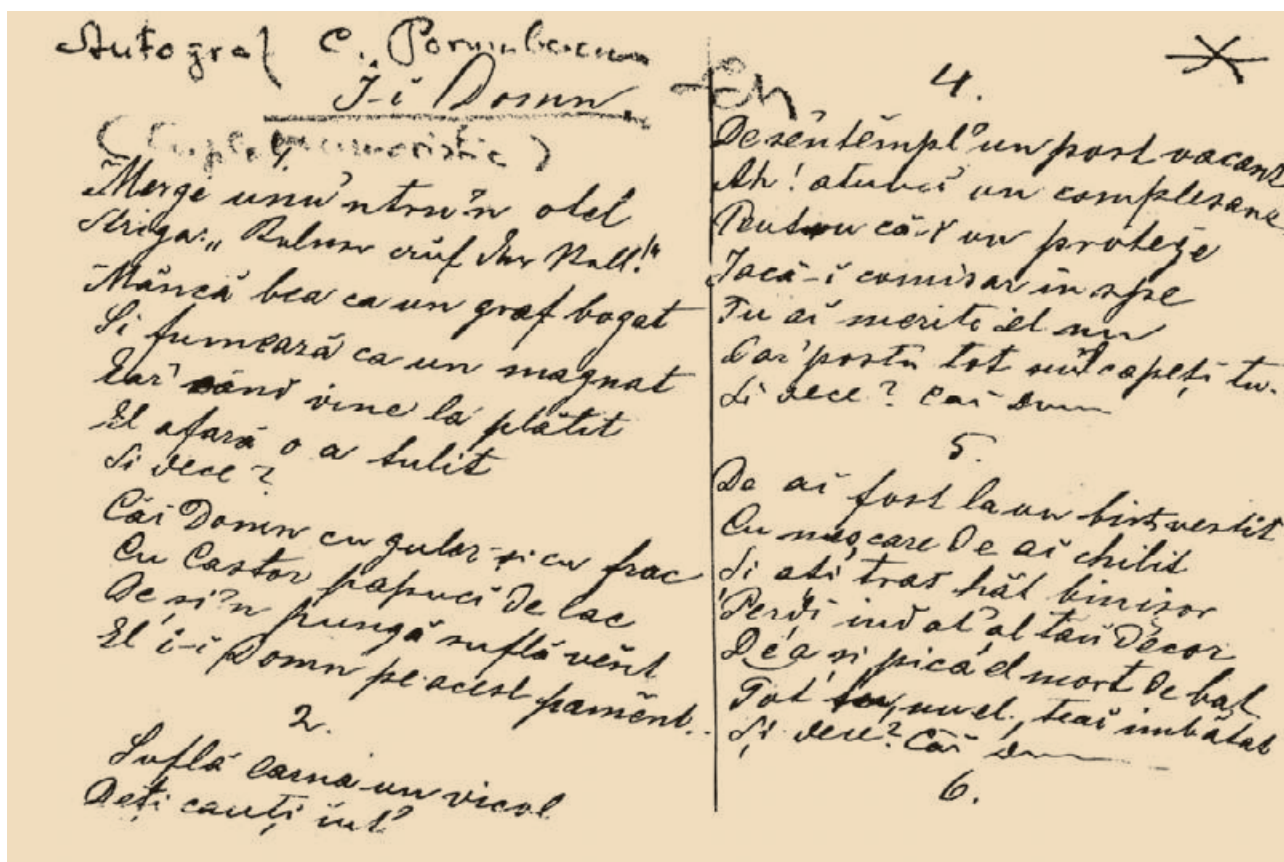 Autograf C. Porumbescu
I-i Domn.
1.
Merge unu'ntru'n otel
Striga: „
Mâncă bea ca un graf bogat
Si fumeară ca un magnat
Iar' când vine la plătit
El afară o a tulit
Si dece?
Căi Domn cu guler și cu frac
Cu Castor papuci de lac
De și'n pungă suflă vĕnt
El i-i Domn pe acest pamĕnt.
2.
Suflă earna un vicol
Deți cauți
4.
De sĕntĕmpl' un post vacant
Ah! atunci un complesane
Pentru că-i un proteže
Iacă-i comisar in spe
Tu ai merite el nu
Dar' postu tot capeți tu.
Si dece? Cai Dom
5.
De ai fost la un birt vestit
Cu de ai chilit
Si ați tras hăt binișor
Perdi indat' al tău Décor
De a și pica el mort de bat
Tot nu el, teai imbătat
Și dece? Căi Dom
6.